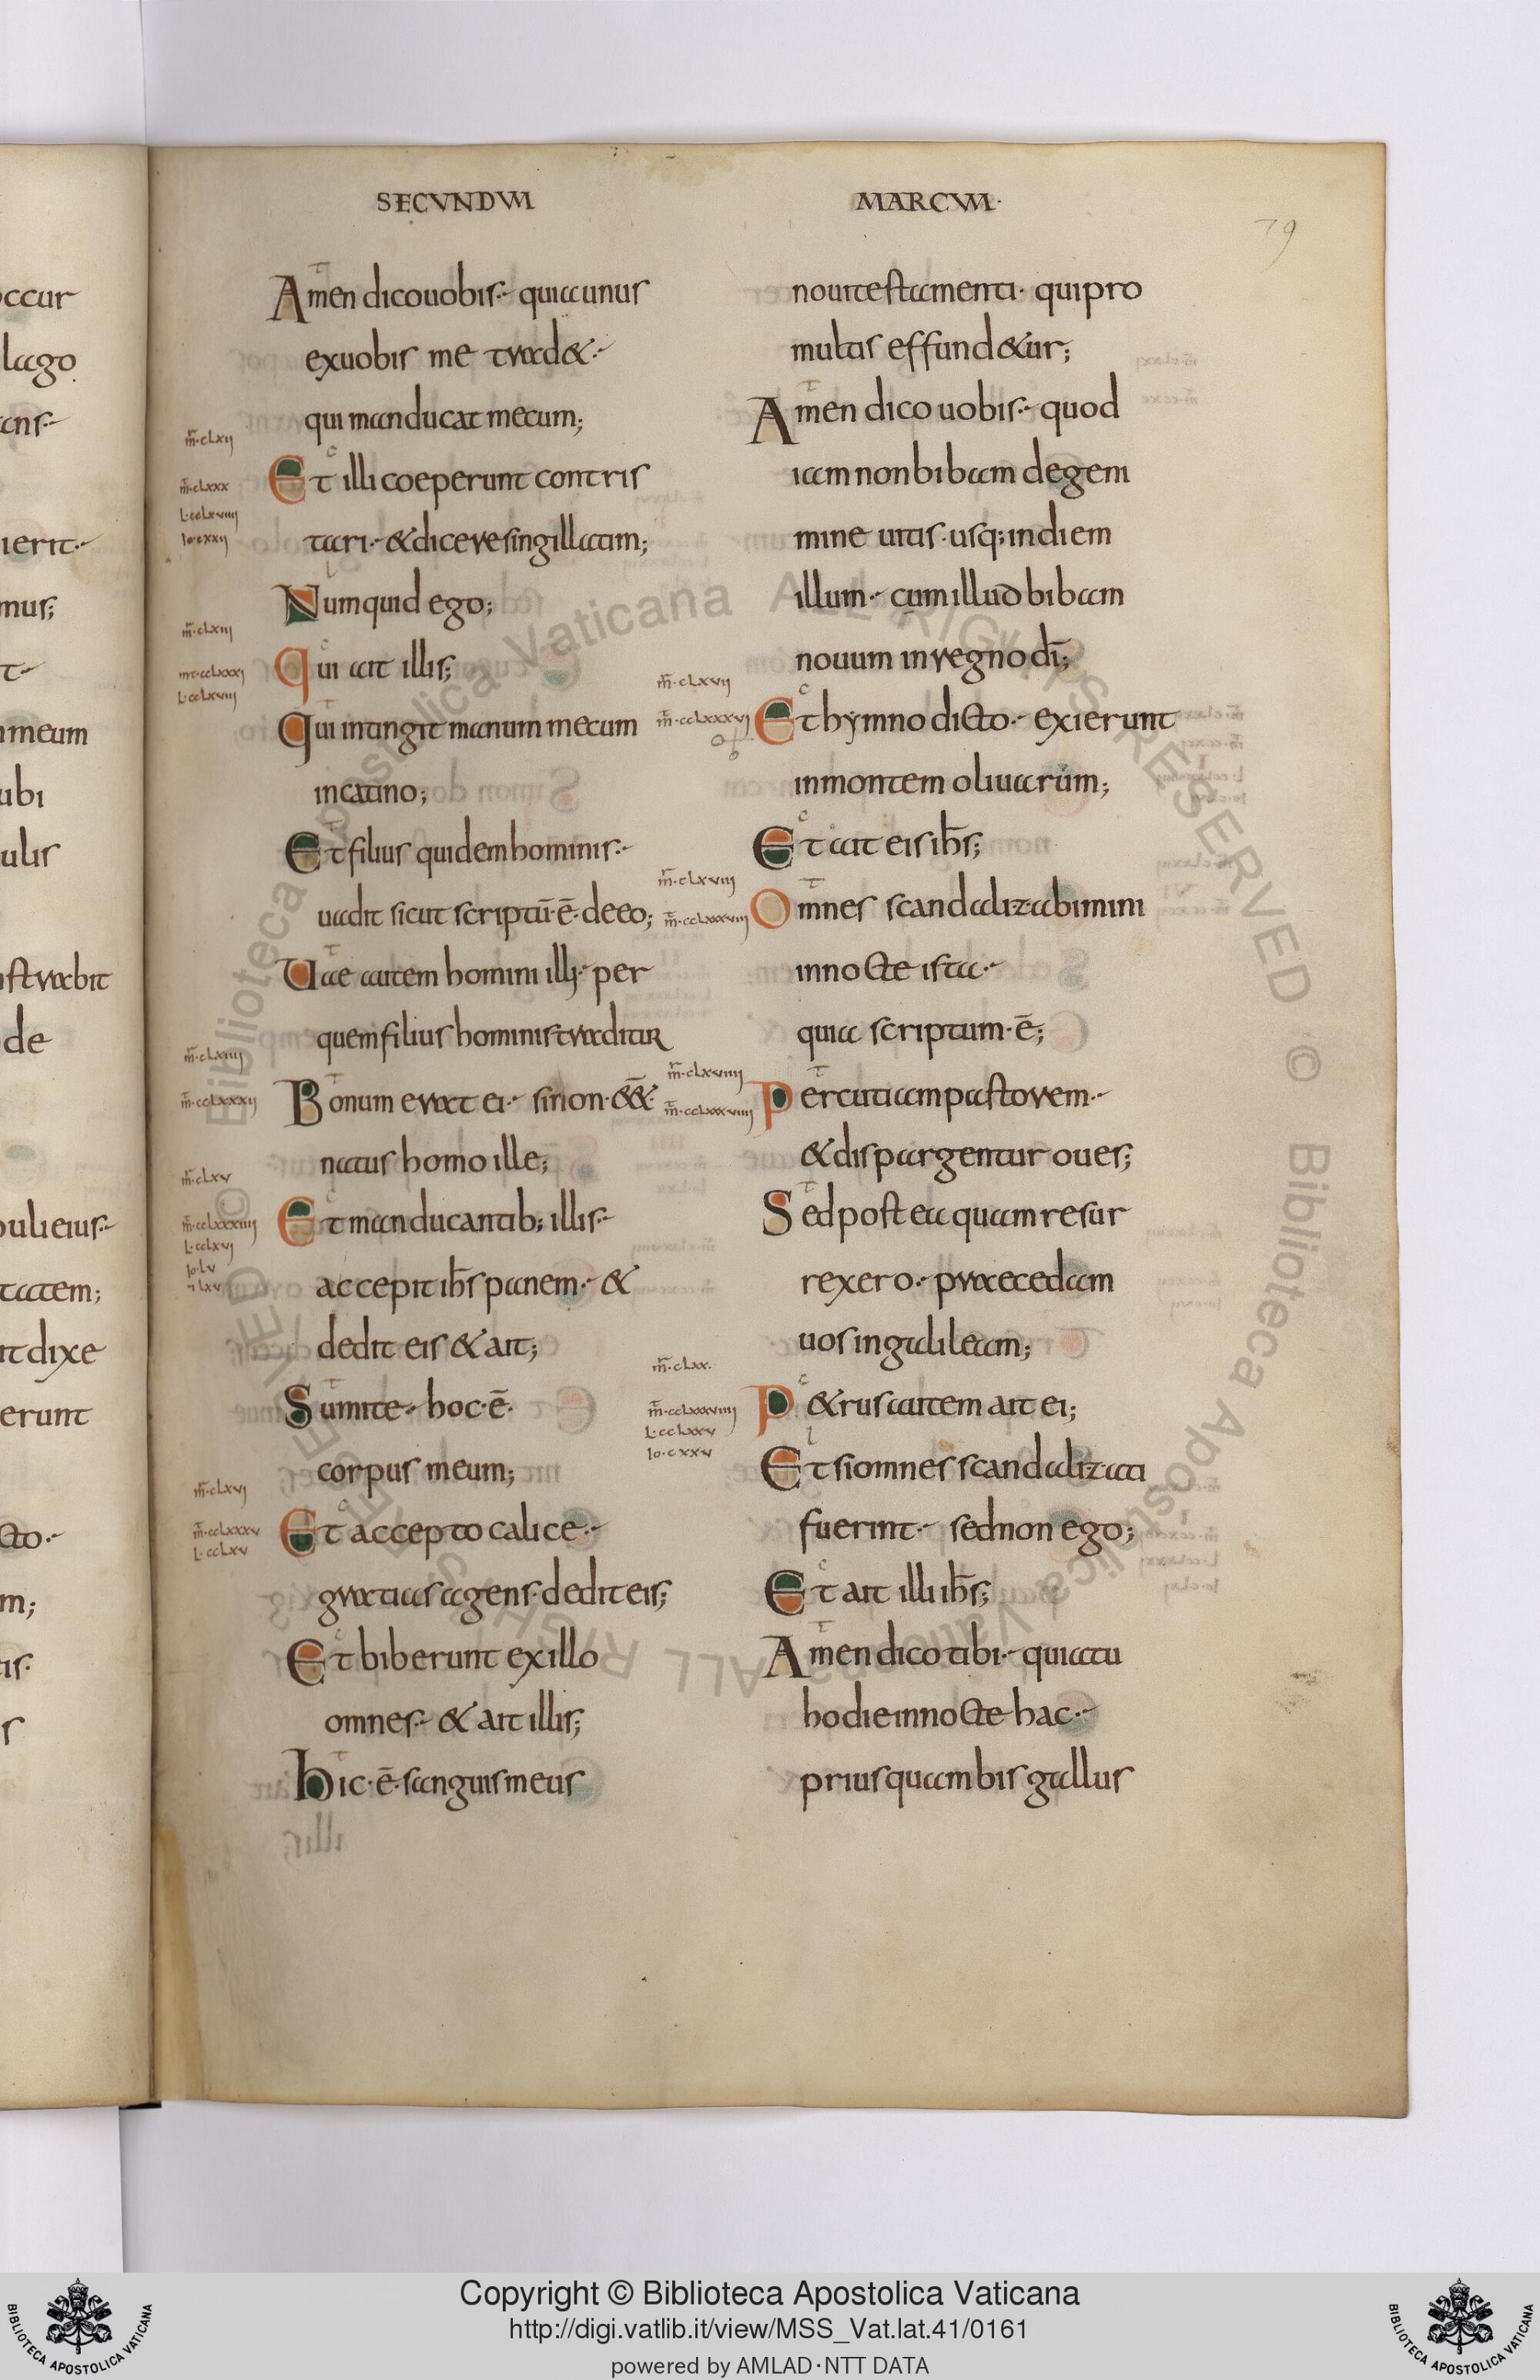 SECUNDUM
MARCUM·
79
Amen dico uobis· quia unus
ex uobis me tradet·
qui manducat mecum;
Et illi coeperunt contris
tari· & dicere singillatim;
Numquid ego;
Qui ait illis;
Qui intingit manum mecum
in catino;
Et filius quidem hominis·
uadit sicut scriptū·ē·de eo;
Uae autem homini illi· per
quem filius hominis traditur
Bonum erat ei· si non·
natus homo ille;
Et manducantib; illis·
accepit ih̄s panem· &
dedit eis & ait;
Sumite· hoc·ē·
corpus meum;
Et accepto calice·
gratias agens·dedit eis;
Et biberunt ex illo
omnes· & ait illis;
hic·ē·sanguis meus
noui testamenti· qui pro
multis effund&ur;
Amen dico uobis· quod
iam non bibam de geni
mine uitis·usq; in diem
illum· cum illud bibam
nouum in regno dī;
Et hymno dicto· exierunt
in montem oliuarum;
Et ait eis ih̄s;
Omnes scandalizabimini
in nocte ista·
quia scriptum·ē;
Percutiam pastorem·
& dispargentur oues;
Sed postea quam resur
rexero· praecedam
uos in galileam;
P&rus autem ait ei;
Et si omnes scandalizati
fuerint· sed non ego;
Et ait illi ih̄s;
Amen dico tibi· quia tu
hodie in nocte hac·
prius quam bis gallus
m̄·clxii
m̄·clxxx
m̄·clxiii
m̄·clxiiii
m̄·cclxxxii
m̄·clxv
L·cclxvi
Io·Lv
m̄·clxvi
m̄·cclxxxv
L·cclxv
m̄·clxvii
m̄·cclxxxvi
m̄·clxviii
m̄·clxviiii
m̄·clxx·
L·cclxxv
Io·cxxv
ccur
lago
ans·
ierit·
mus;
t·
meum
ubi
ulis
strabit
de
puli eius·
tatem;
it dixe
erunt
cto·
m;
is·
s
Copyright © Biblioteca Apostolica Vaticana
http://digi.vatlib.it/view/MSS_Vat.lat.41/0161
powered by AMLAD·NTT DATA
BIBLIOTECA APOSTOLICA VATICANA
BIBLIOTECA APOSTOLICA VATICANA